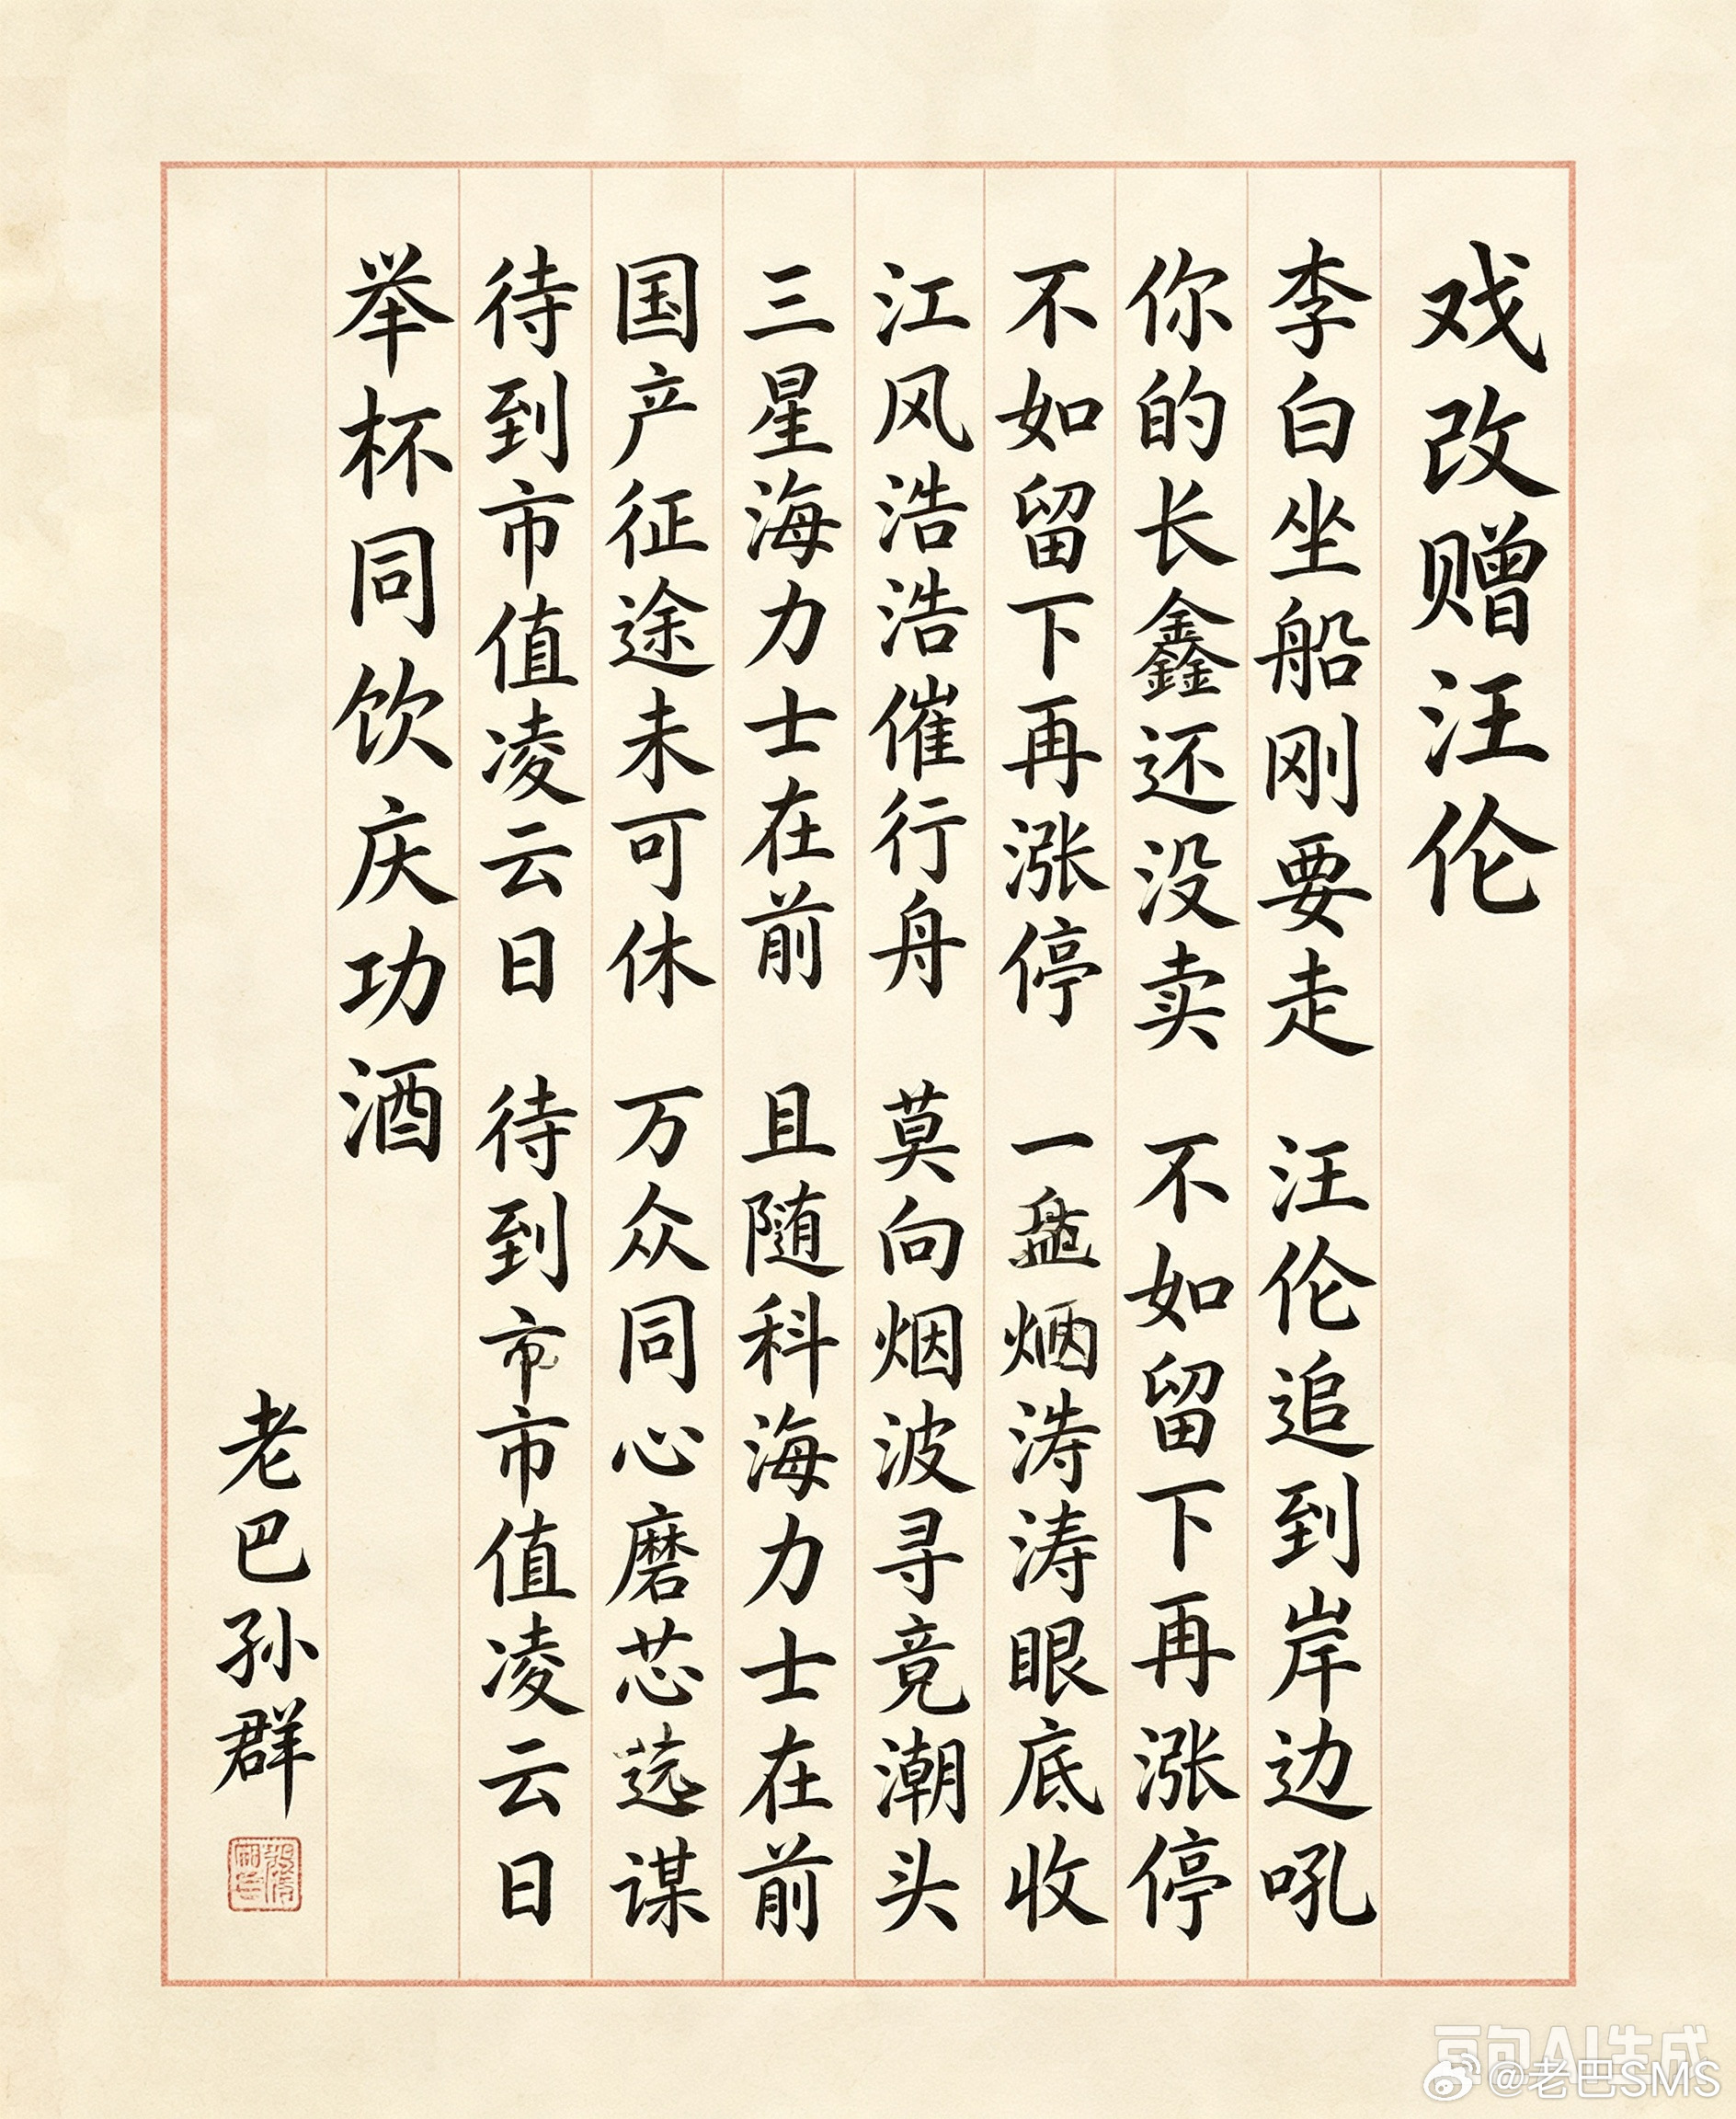 戏改赠汪伦
李白坐船刚要走 汪伦追到岸边吼
你的长鑫还没卖 不如留下再涨停
不如留下再涨停 一涛涛眼底收
江风浩浩催行舟 莫向烟波寻竟潮头
三星海力士在前 且随科海力士在前
国产征途未可休 万众同心磨芯谋
待到市值凌云日 待到市市值凌云日
举杯同饮庆功酒
老巴孙群
豆包AI生成
@老巴SMS